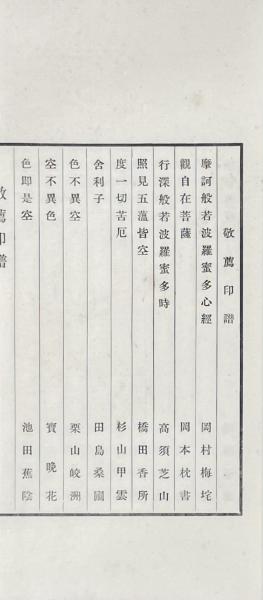 敬薦印譜
摩訶般若波羅蜜多心經 岡村梅垞
觀自在菩薩 岡本枕書
行深般若波羅蜜多時 高須芝山
照見五蘊皆空 橋田香所
度一切苦厄 杉山甲雲
舍利子 田島桑園
色不異空 栗山皎洲
空不異色 寶晚花
色即是空 池田蕉陰
敬薦印譜